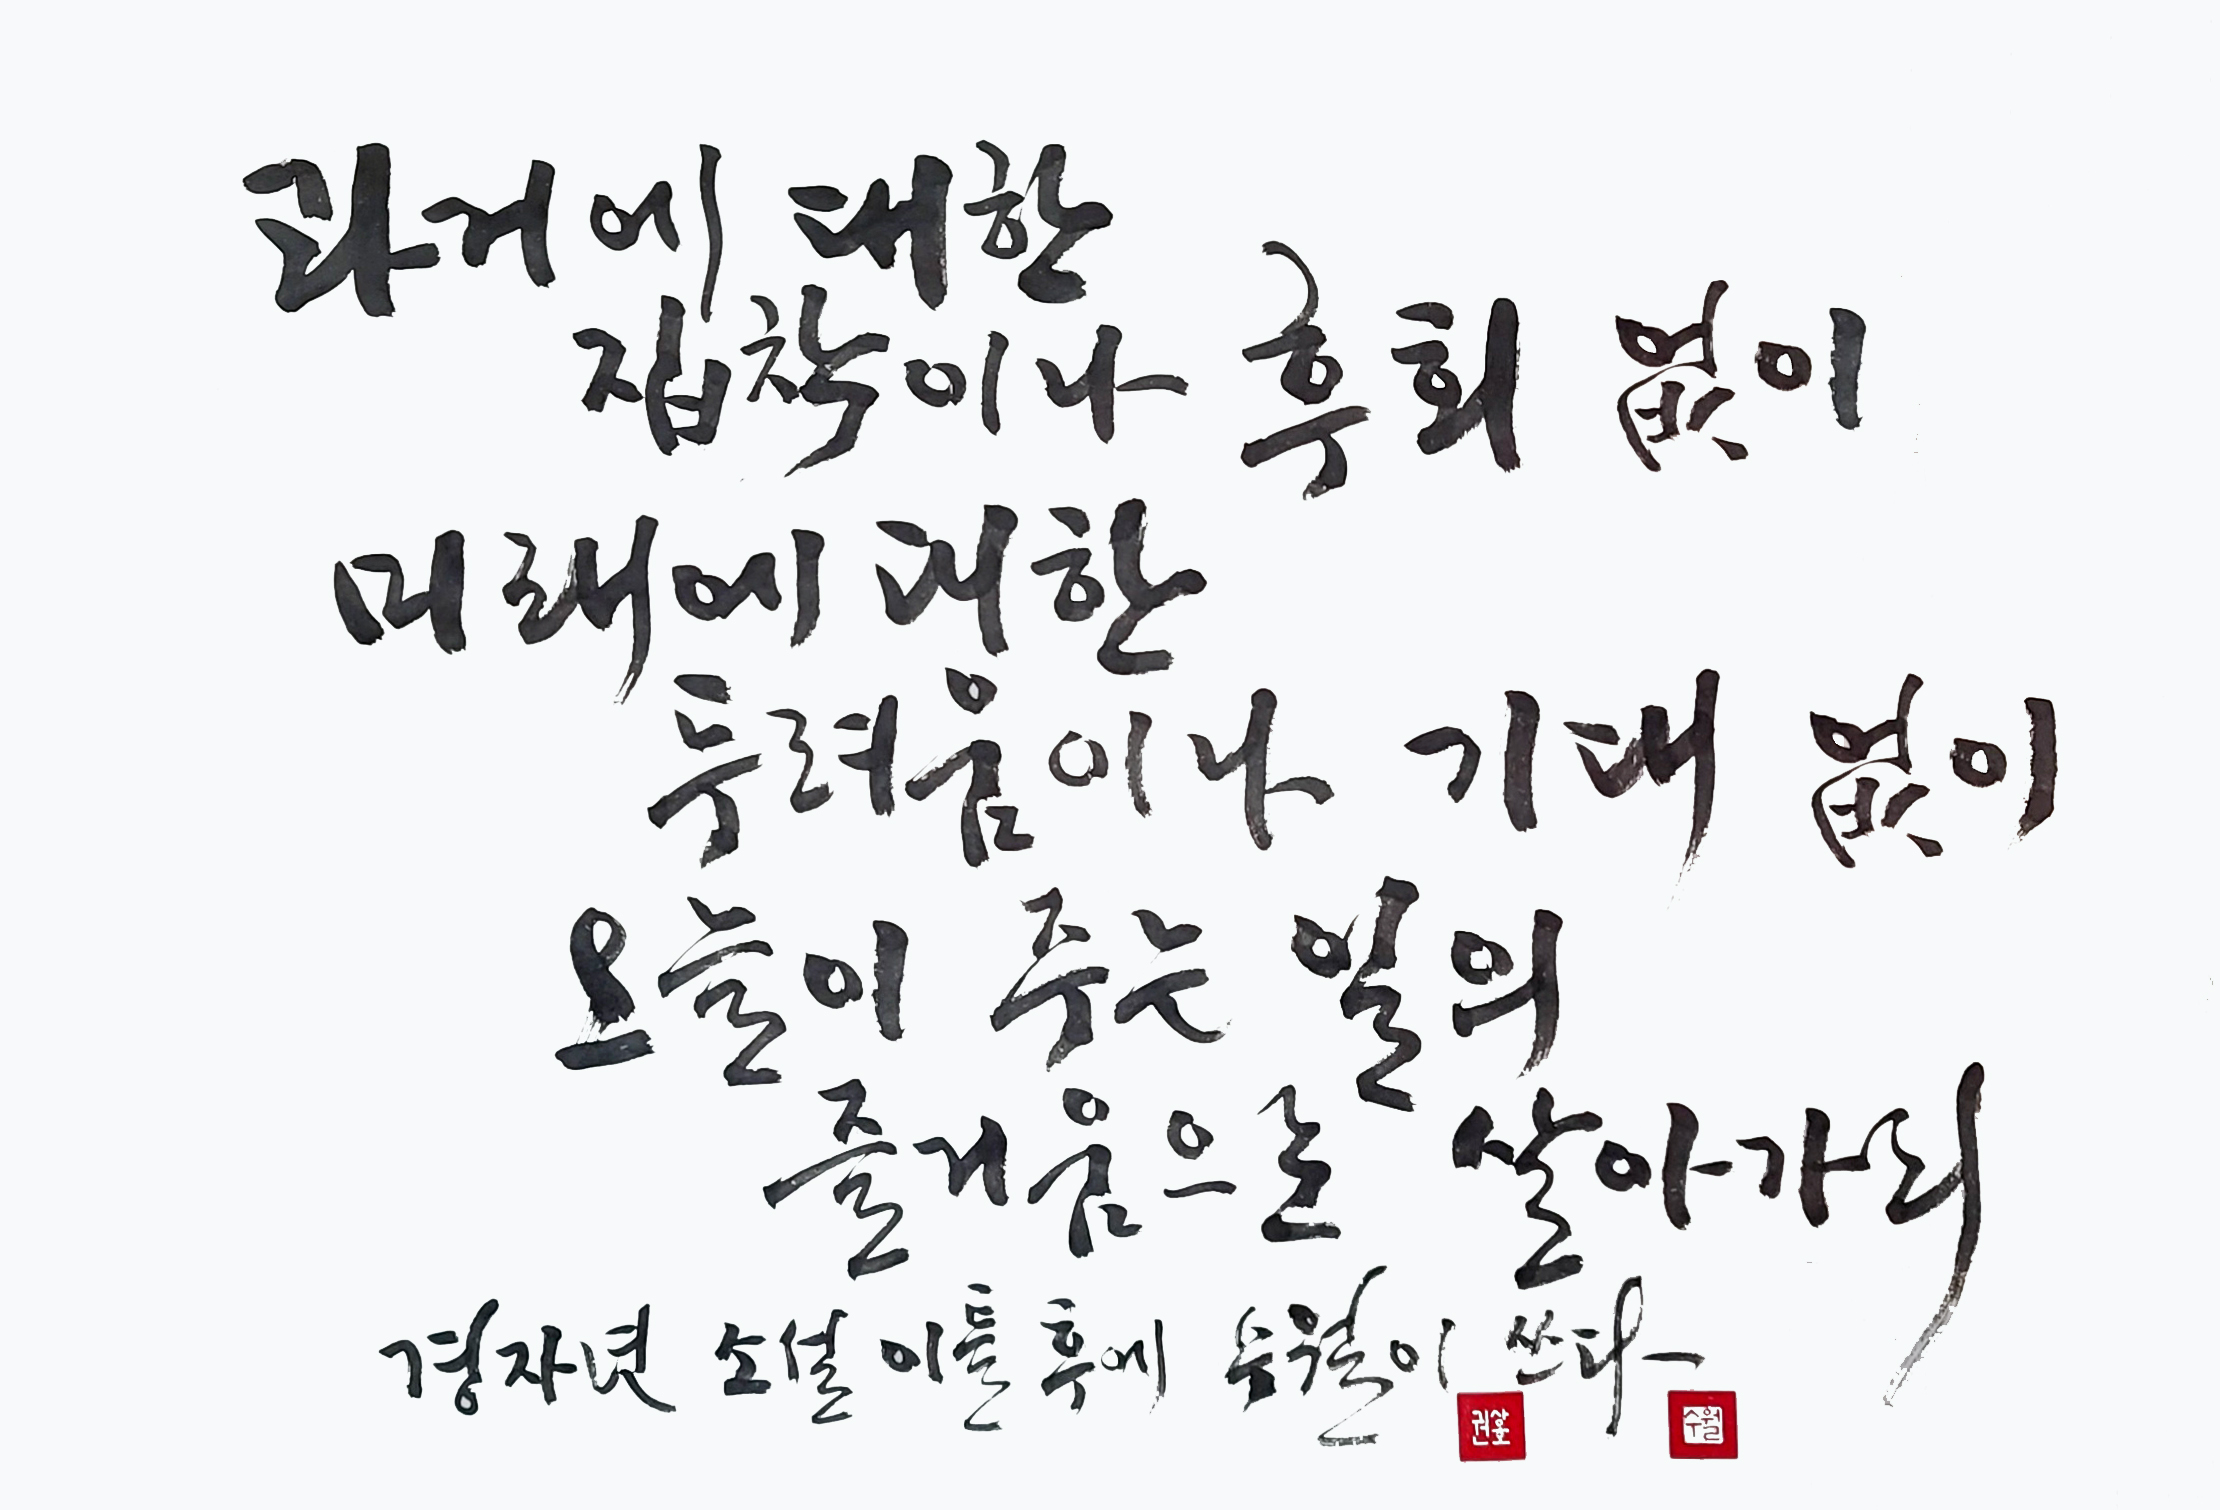 과거에 대한
집착이나 후회 없이
미래에 대한
두려움이나 기대 없이
오늘이 주는 일의
즐거움으로 살아가리
경자년 소설 이틀 후에 수월이 쓰다
수월